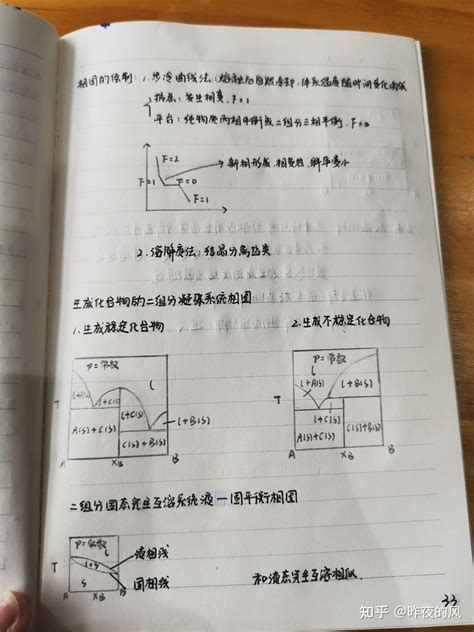 相图的绘制：1.步冷曲线法：熔融后自然冷却，体系温度随时间变化曲线
拐点：发生相变，F=1
平台：纯物质两相平衡或二组分三相平衡，F=0
F=2
新相形成，相变热，斜率变小
F=1
F=0
F=1
2.溶解度法：结晶分离盐类
生成化合物的二组分凝聚系统相图
1.生成稳定化合物
2.生成不稳定化合物
P=常数
l
l+C(s)
l+C(s)
l+B(s)
T
A(s)+C(s)
C(s)+B(s)
A
XB
B
P=常数
l
l+A(s)
l+C(s)
T
l+B(s)
A(s)+C(s)
C(s)+B(s)
A
XB
B
二组分固态完全互溶系统液一固平衡相图
P=常数
l
l+s
s
T
A
B
液相线
固相线
和液态完全互溶相似.
33
知乎 @昨夜的风